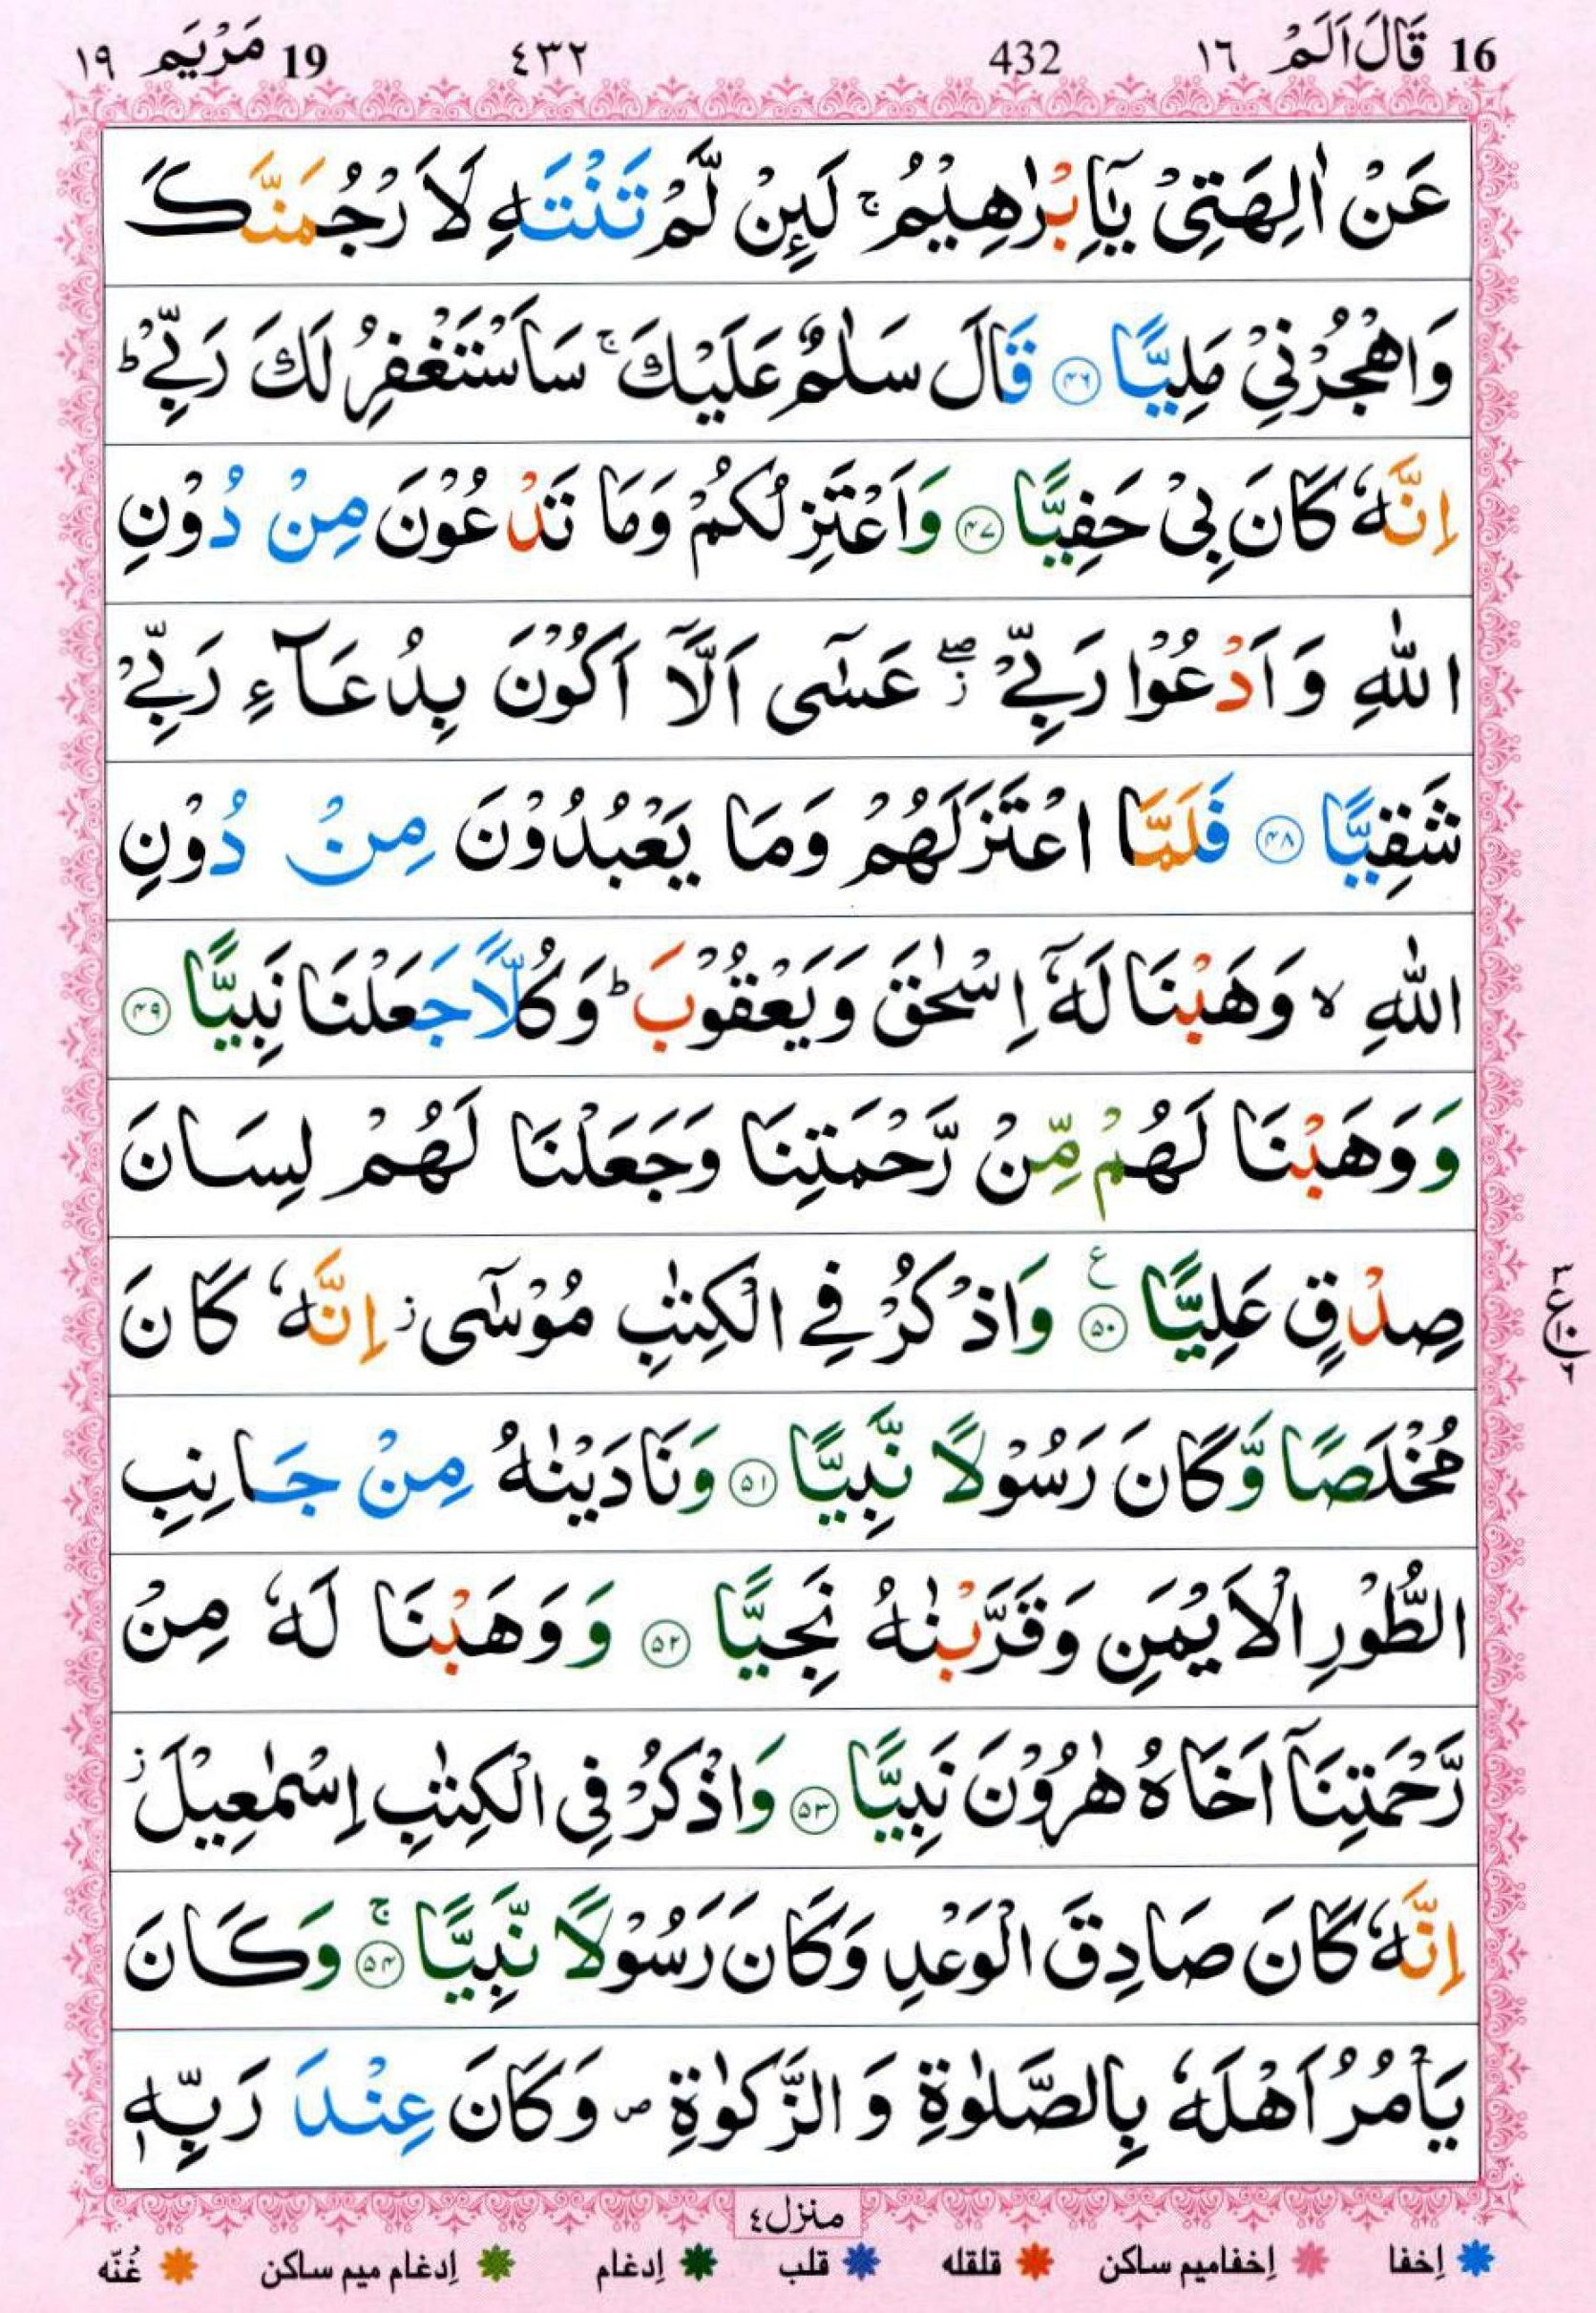 16 قَالَ اَلَمْ ١٦ 432 ٤٣٢ 19 مَرْيَم ١٩
عَنْ اٰلِهَتِیْ یٰۤاِبْرٰهِیْمُ ۚ لَىِٕنْ لَّمْ تَنْتَهِ لَاَرْجُمَنَّكَ
وَاهْجُرْنِیْ مَلِیًّا ۴۶ قَالَ سَلٰمٌ عَلَیْكَ ۚ سَاَسْتَغْفِرُ لَكَ رَبِّیْ ؕ
اِنَّهٗ كَانَ بِیْ حَفِیًّا ۴۷ وَاَعْتَزِلُكُمْ وَمَا تَدْعُوْنَ مِنْ دُوْنِ
اللّٰهِ وَاَدْعُوْا رَبِّیْ ۖز عَسٰۤی اَلَّاۤ اَكُوْنَ بِدُعَآءِ رَبِّیْ
شَقِیًّا ۴۸ فَلَمَّا اعْتَزَلَهُمْ وَمَا یَعْبُدُوْنَ مِنْ دُوْنِ
اللّٰهِ ۙ وَهَبْنَا لَهٗۤ اِسْحٰقَ وَیَعْقُوْبَ ؕ وَكُلًّا جَعَلْنَا نَبِیًّا ۴۹
وَوَهَبْنَا لَهُمْ مِّنْ رَّحْمَتِنَا وَجَعَلْنَا لَهُمْ لِسَانَ
صِدْقٍ عَلِیًّا ۵۰ ع وَاذْكُرْ فِی الْكِتٰبِ مُوْسٰۤی ز اِنَّهٗ كَانَ
مُخْلَصًا وَّكَانَ رَسُوْلًا نَّبِیًّا ۵۱ وَنَادَیْنٰهُ مِنْ جَانِبِ
الطُّوْرِ الْاَیْمَنِ وَقَرَّبْنٰهُ نَجِیًّا ۵۲ وَوَهَبْنَا لَهٗ مِنْ
رَّحْمَتِنَاۤ اَخَاهُ هٰرُوْنَ نَبِیًّا ۵۳ وَاذْكُرْ فِی الْكِتٰبِ اِسْمٰعِیْلَ ز
اِنَّهٗ كَانَ صَادِقَ الْوَعْدِ وَكَانَ رَسُوْلًا نَّبِیًّا ۵۴ ۚ وَكَانَ
یَاْمُرُ اَهْلَهٗ بِالصَّلٰوةِ وَالزَّكٰوةِ ص وَكَانَ عِنْدَ رَبِّهٖ
۳ ع ۱۰ ۶
منزل٤
اِخفا اِخفامیم ساکن قلقله قلب اِدغام اِدغام میم ساکن غُنّه